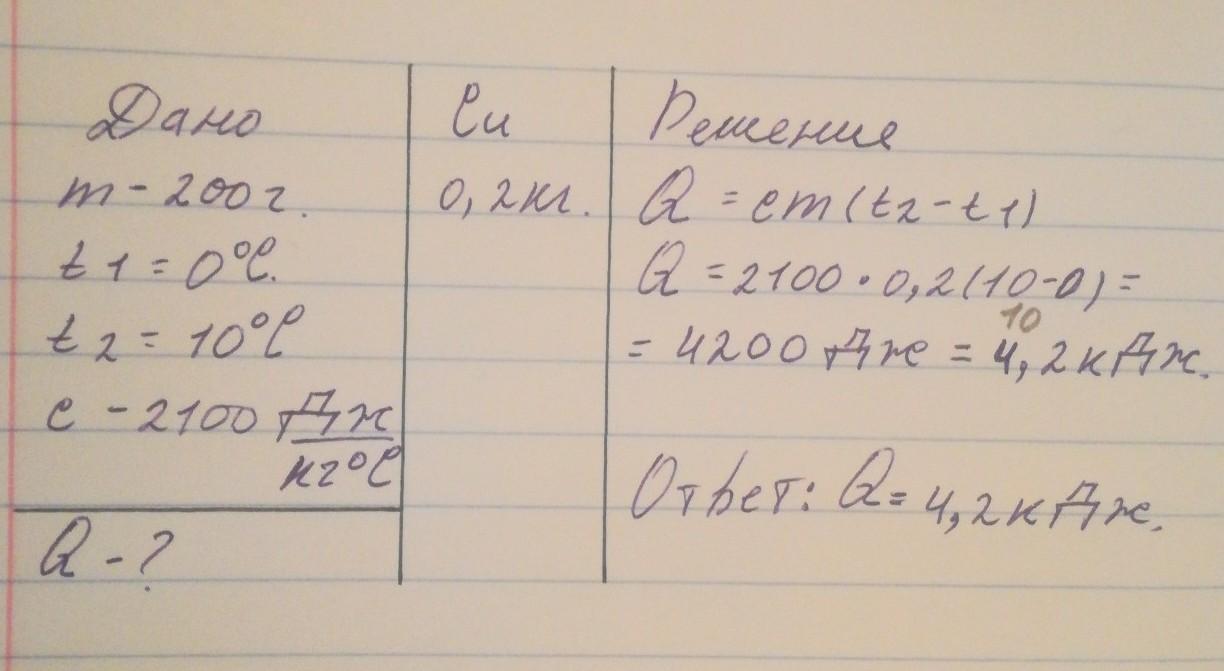 Дано
m - 200 г.
t1 = 0°C.
t2 = 10°C
c - 2100 Дж
кг°C
Q - ?
Си
0,2 кг.
Решение
Q = cm(t2 - t1)
Q = 2100 · 0,2(10-0) =
10
= 4200 Дж = 4,2 кДж.
Ответ: Q = 4,2 кДж.